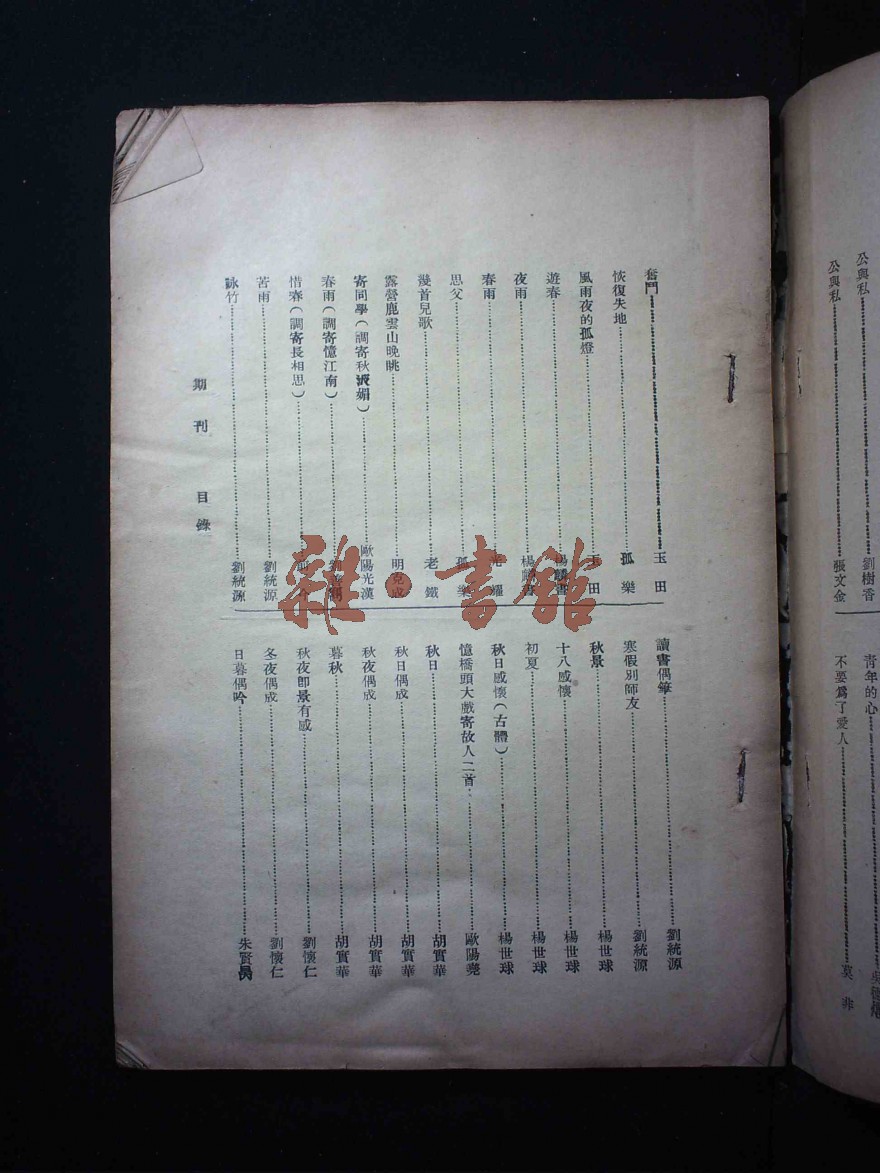 公與私……劉樹香
公與私……張文金
青年的心……
不要爲了愛人……莫非
奮鬥……玉田
恢復失地……孤樂
風雨夜的孤燈……玉田
遊春……楊麟書
夜雨……楊麟書
春雨……光耀
思父……孤樂
幾首兒歌……老鐵
露營鹿雲山晚眺……明克成
寄同學（調寄秋波媚）……歐陽光漢
春雨（調寄憶江南）……
惜春（調寄長相思）……
苦雨……劉統源
詠竹……劉統源
讀書偶筆……劉統源
寒假別師友……劉統源
秋景……楊世球
十八感懷……楊世球
初夏……楊世球
秋日感懷（古體）……楊世球
憶橋頭大戲寄故人二首……歐陽堯
秋日……胡實華
秋日偶成……胡實華
秋夜偶成……胡實華
暮秋……胡實華
秋夜卽景有感……劉懷仁
冬夜偶成……劉懷仁
日暮偶吟……朱賢
期刊目錄
雜·書館